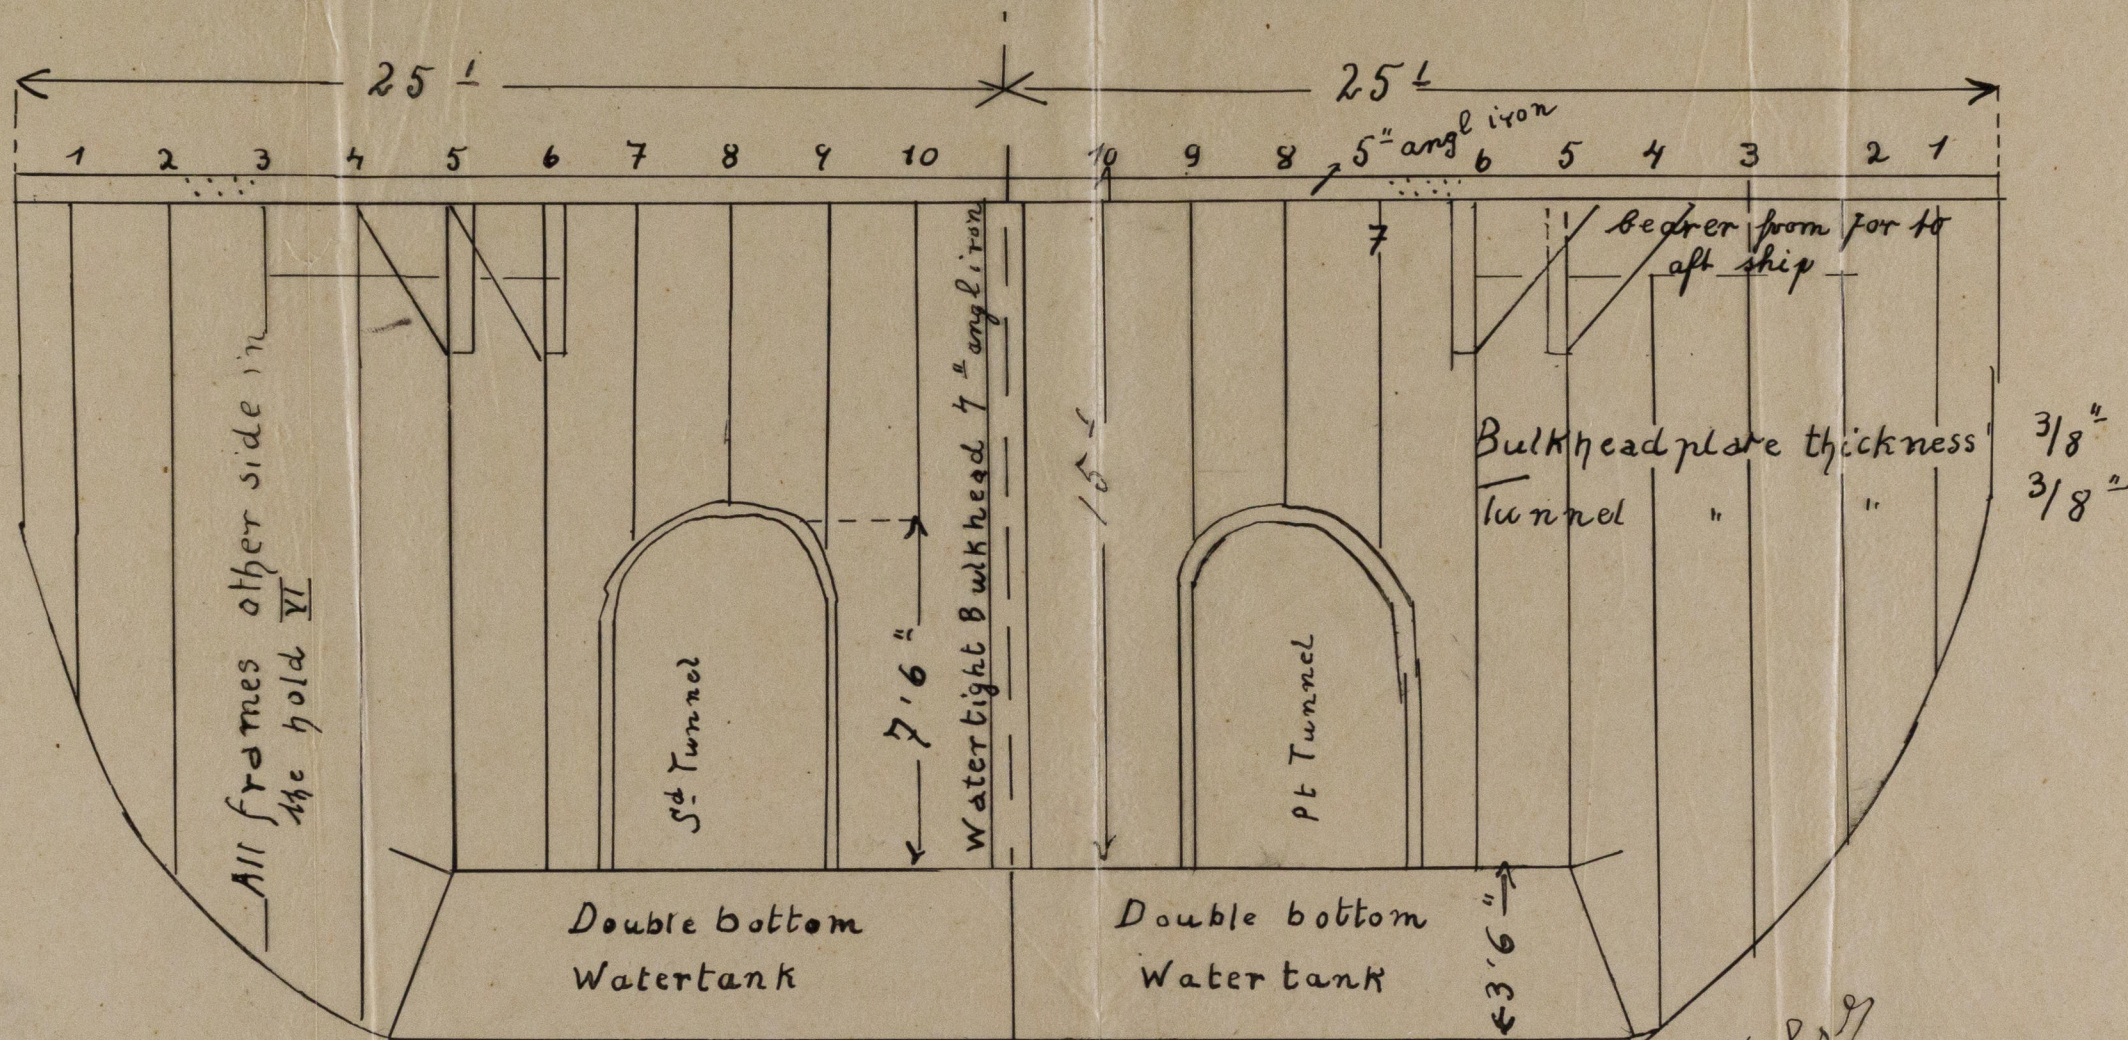 25'
25'
5" angl iron
1 2 3 4 5 6 7 8 9 10
10 9 8 6 5 4 3 2 1
7
bearer from for to
aft ship
All frames other side in
the hold VI
Watertight Bulkhead 4" angl iron
15'
Bulkhead plate thickness 3/8"
Tunnel " " 3/8"
Sd Tunnel
7'6"
Pt Tunnel
Double bottom
Watertank
Double bottom
Water tank
3'6"